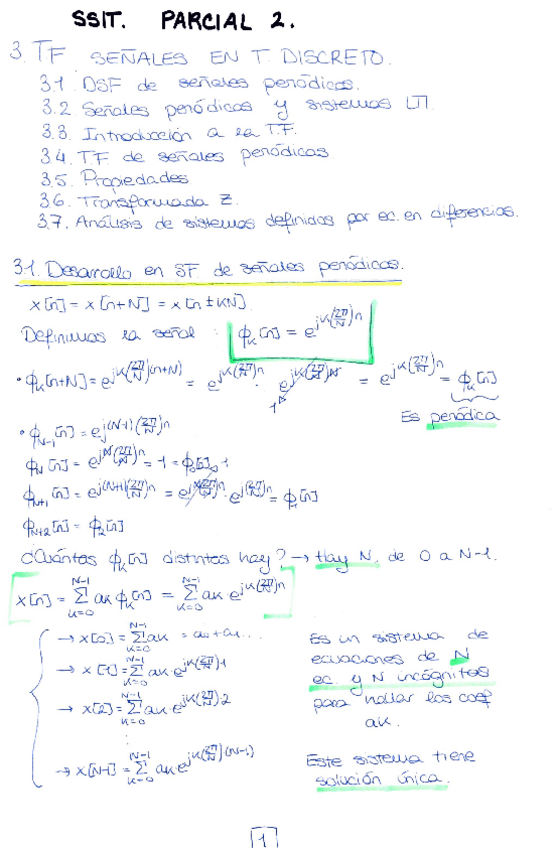 SSIT. PARCIAL 2.
3. TF SEÑALES EN T. DISCRETO.
3.1. DSF de señales periódicas.
3.2 Señales periódicas y sistemas LTI.
3.3. Introducción a la T.F.
3.4. TF de señales periódicas
3.5. Propiedades
3.6. Transformada Z.
3.7. Análisis de sistemas definidos por ec. en diferencias.
3.1. Desarrollo en SF de señales periódicas.
x[n] = x[n+N] = x[n±kN]
Definimos la señal : ϕₖ[n] = e^{jk(2π/N)n}
• ϕₖ[n+N] = e^{jk(2π/N)(n+N)} = e^{jk(2π/N)n} · e^{jk(2π/N)N} = e^{jk(2π/N)n} = ϕₖ[n]
1
Es periódica
• ϕ_{N-1}[n] = e^{j(N-1)(2π/N)n}
ϕ_N[n] = e^{jN(2π/N)n} = 1 = ϕ₀[n]
ϕ_{N+1}[n] = e^{j(N+1)(2π/N)n} = e^{jN(2π/N)n} · e^{j(2π/N)n} = ϕ₁[n]
ϕ_{N+2}[n] = ϕ₂[n]
¿Cuántas ϕₖ[n] distintas hay? → Hay N, de 0 a N-1.
x[n] = Σ_{k=0}^{N-1} aₖ ϕₖ[n] = Σ_{k=0}^{N-1} aₖ e^{jk(2π/N)n}
→ x[0] = Σ_{k=0}^{N-1} aₖ = a₀ + a₁ ...
→ x[1] = Σ_{k=0}^{N-1} aₖ e^{jk(2π/N)1}
→ x[2] = Σ_{k=0}^{N-1} aₖ e^{jk(2π/N)2}
⋮
→ x[N-1] = Σ_{k=0}^{N-1} aₖ e^{jk(2π/N)(N-1)}
Es un sistema de
ecuaciones de N
ec. y N incógnitas
para hallar los coef
aₖ.
Este sistema tiene
solución única.
1